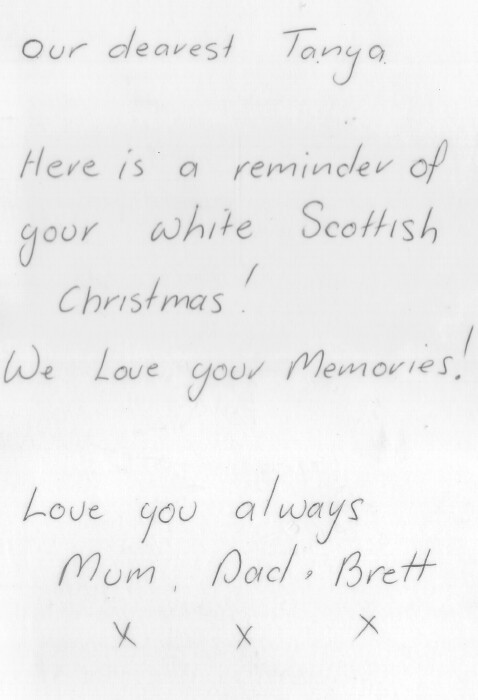 Our dearest Tanya
Here is a reminder of
your white Scottish
Christmas!
We Love your Memories!
Love you always
Mum, Dad, Brett
x x x